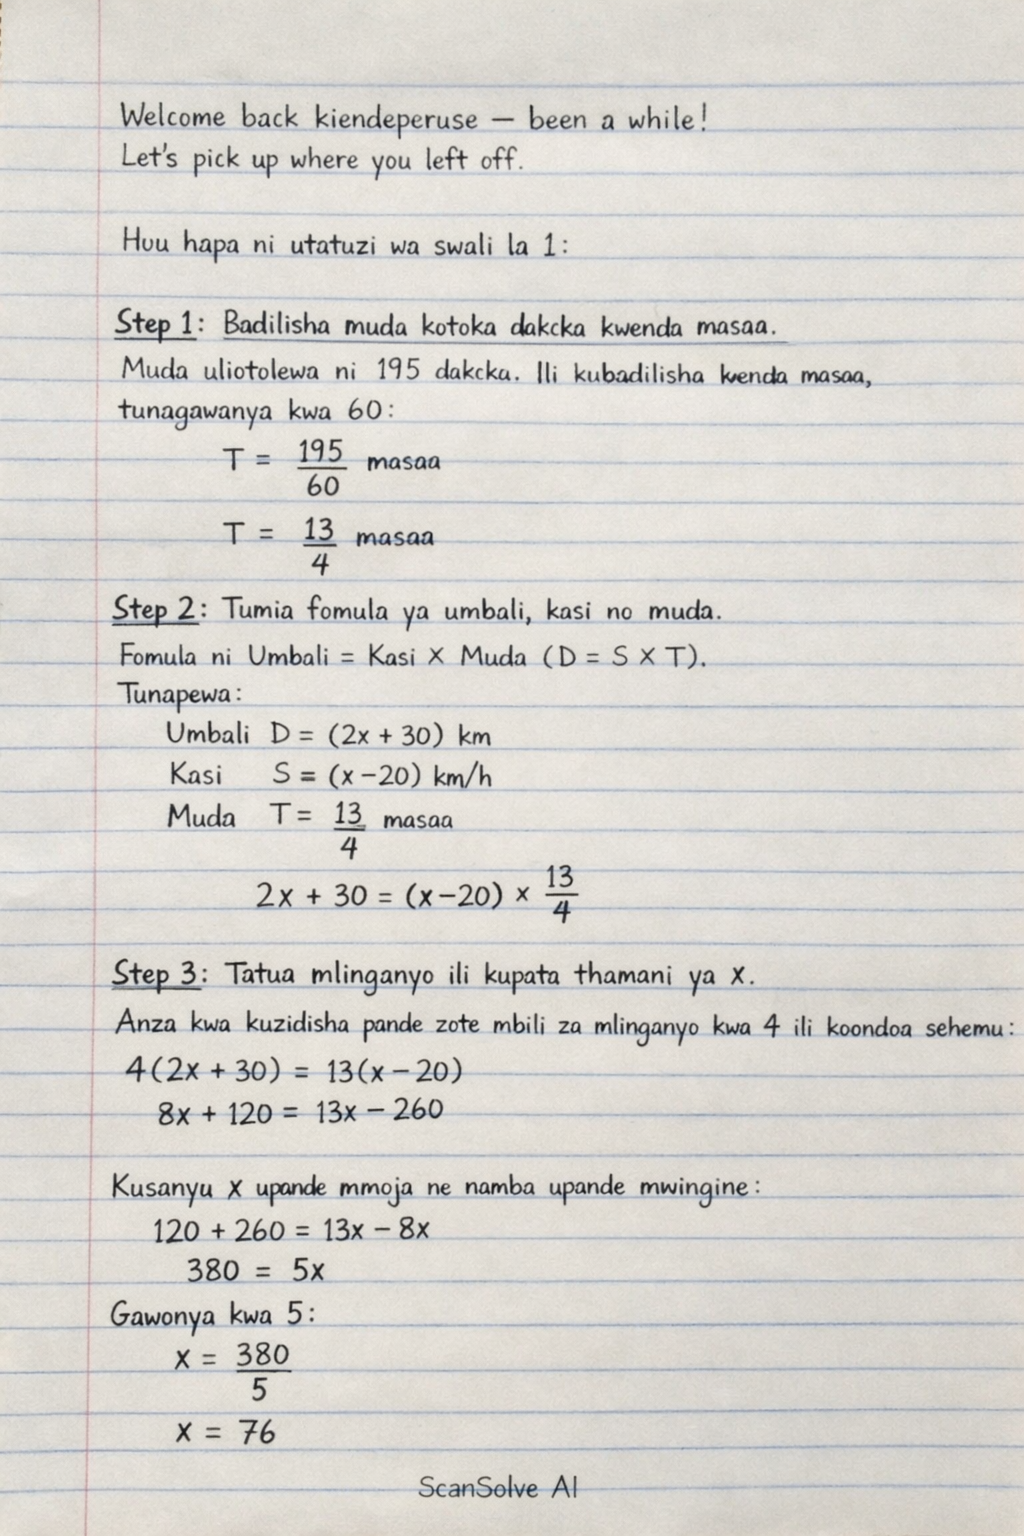 Welcome back kiendeperuse — been a while!
Let's pick up where you left off.
Huu hapa ni utatuzi wa swali la 1:
Step 1: Badilisha muda kotoka dakcka kwenda masaa.
Muda uliotolewa ni 195 dakcka. Ili kubadilisha kwenda masaa,
tunagawanya kwa 60:
T = 195/60 masaa
T = 13/4 masaa
Step 2: Tumia fomula ya umbali, kasi no muda.
Fomula ni Umbali = Kasi × Muda (D = S × T).
Tunapewa:
Umbali D = (2x + 30) km
Kasi S = (x – 20) km/h
Muda T = 13/4 masaa
2x + 30 = (x – 20) × 13/4
Step 3: Tatua mlinganyo ili kupata thamani ya x.
Anza kwa kuzidisha pande zote mbili za mlinganyo kwa 4 ili koondoa sehemu:
4(2x + 30) = 13(x – 20)
8x + 120 = 13x – 260
Kusanyu x upande mmoja ne namba upande mwingine:
120 + 260 = 13x – 8x
380 = 5x
Gawonya kwa 5:
x = 380/5
x = 76
ScanSolve AI